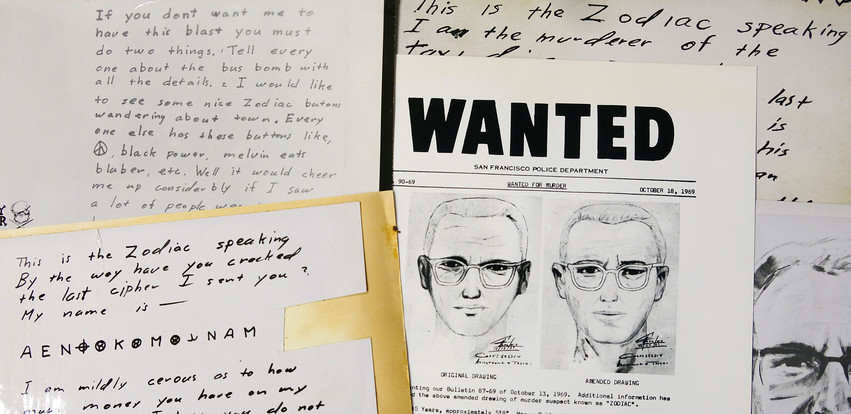 If you dont want me to
have this blast you must
do two things. 1 Tell every
one about the bus bomb with
all the details. 2 I would like
to see some nice Zodiac butons
wandering about town. Every
one else has these buttons like,
☮, black power, melvin eats
bluber, etc. Well it would cheer
me up considerbly if I saw
a lot of people
This is the Zodiac speaking
By the way have you cracked
the last cipher I sent you?
My name is —
A E N ⌖ ⊗ K ⊗ M ⊗ ⅃ N A M
I am mildly cerous as to how
much money you have on my
do not
This is the Zodiac speaking
I am the murderer of the
last
is
his
an
WANTED
SAN FRANCISCO POLICE DEPARTMENT
90-69 WANTED FOR MURDER OCTOBER 18, 1969
ORIGINAL DRAWING AMENDED DRAWING
nting our Bulletin 87-69 of October 13, 1969. Additional information has
d the above amended drawing of murder suspect known as "ZODIAC".
Years, approximately